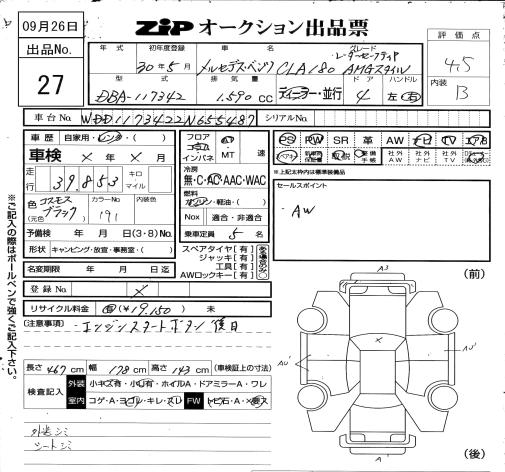 09月26日
ZIP オークション出品票
出品No.
27
年式
初年度登録
車名
グレード
評価点
30年5月
メルセデス・ベンツ CLA180
レーダーセーフティP
AMGスタイル
4.5
型式
排気量
ドア
ハンドル
内装
DBA-117342
1.590cc
ディーラー・並行
4
左・右
B
車台No.
WDD1173422N655487
シリアルNo.
車歴
自家用・レンタ・( )
フロア
コラム
インパネ
AT
MT
速
PS PW SR 革 AW ナビ TV エアB
車検 × 年 × 月
取説
整備手帳
社外AW
社外ナビ
社外TV
走行
39,853
キロ
マイル
冷房
無・C・AC・AAC・WAC
※上記太枠内は標準装備品
セールスポイント
・AW
色
(元色)
コスモスブラック
カラーNo.
191
内装色
燃料
ガソリン・軽油・( )
Nox
適合・非適合
予備検 年 月 日(3・8)No.
乗車定員 5 名
形状
キャンピング・放宣・事務室・( )
スペアタイヤ[有]
ジャッキ[有]
工具[有]
AWロックキー[有]
名変期限 年 月 日迄
登録No.
×
リサイクル料金
有(¥19,150) 未
(注意事項)
エンジンスタートボタン後日
長さ 467 cm 幅 178 cm 高さ 143 cm (車検証上の寸法)
検査記入
外装
小キズ有・小凹有・ホイルA・ドアミラーA・ワレ
室内
コゲ・A・ヨゴレ・キレ・スレ
FW
トビ石・A・×要ス
外送シミ
シートシミ
※ご記入の際はボールペンで強くご記入下さい。
(前)
A3
×
AU'
AU'
A'
(後)